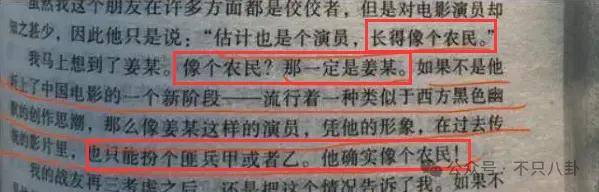 虽然我这个朋友在许多方面都是佼佼者，但是对电影演员却
知之甚少，因此他只是说：“估计也是个演员，长得像个农民。”
我马上想到了姜某。像个农民？那一定是姜某。如果不是他
赶上了中国电影的一个新阶段——流行着一种类似于西方黑色幽
默的创作思潮，那么像姜某这样的演员，凭他的形象，在过去传
的影片里，也只能扮个匪兵甲或者乙。他确实像个农民！
我的战友再三考虑之后，还是把这个情况告诉了我。如果不
公众号：不只八卦